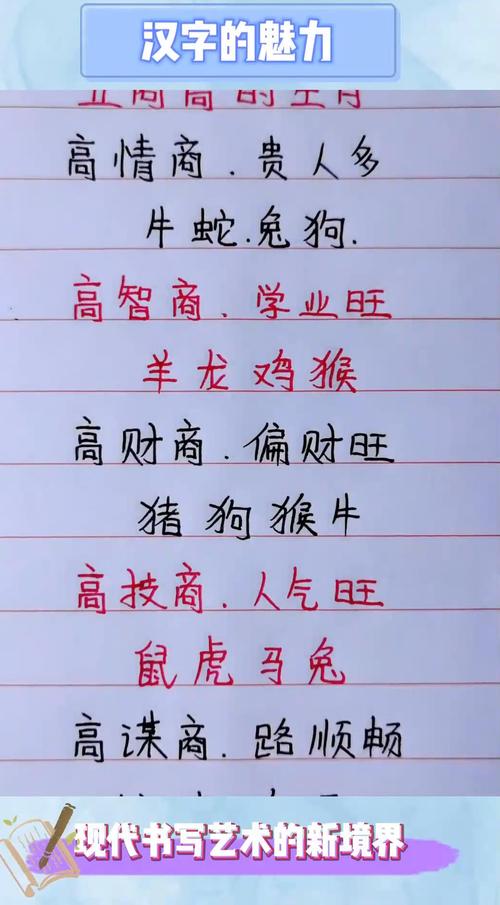 汉字的魅力
高情商.贵人多
牛蛇.兔狗.
高智商.学业旺
羊龙鸡猴
高财商.偏财旺
猪狗猴牛
高技商.人气旺
鼠虎马兔
高谋商.路顺畅
现代书写艺术的新境界